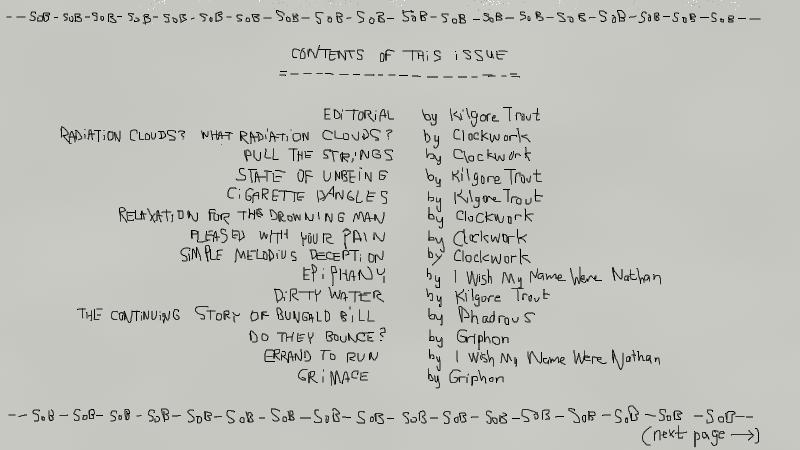 -- SoB - SoB - SoB - SoB - SoB - SoB - SoB - SoB - SoB - SoB - SoB - SoB - SoB - SoB - SoB - SoB - SoB - SoB - --
CONTENTS OF THIS ISSUE
=-----------------=
EDITORIAL by Kilgore Trout
RADIATION CLOUDS? WHAT RADIATION CLOUDS? by Clockwork
PULL THE STRINGS by Clockwork
STATE OF UNBEING by Kilgore Trout
CIGARETTE DANGLES by Kilgore Trout
RELAXATION FOR THE DROWNING MAN by Clockwork
PLEASED WITH YOUR PAIN by Clockwork
SIMPLE MELODIUS DECEPTION by Clockwork
EPIPHANY by I Wish My Name Were Nathan
DIRTY WATER by Kilgore Trout
THE CONTINUING STORY OF BUNGALD BILL by Phadrous
DO THEY BOUNCE? by Griphon
ERRAND TO RUN by I Wish My Name Were Nathan
GRIMACE by Griphon
-- SoB - SoB - SoB - SoB - SoB - SoB - SoB - SoB - SoB - SoB - SoB - SoB - SoB - SoB - SoB - SoB - SoB --
(next page -->)